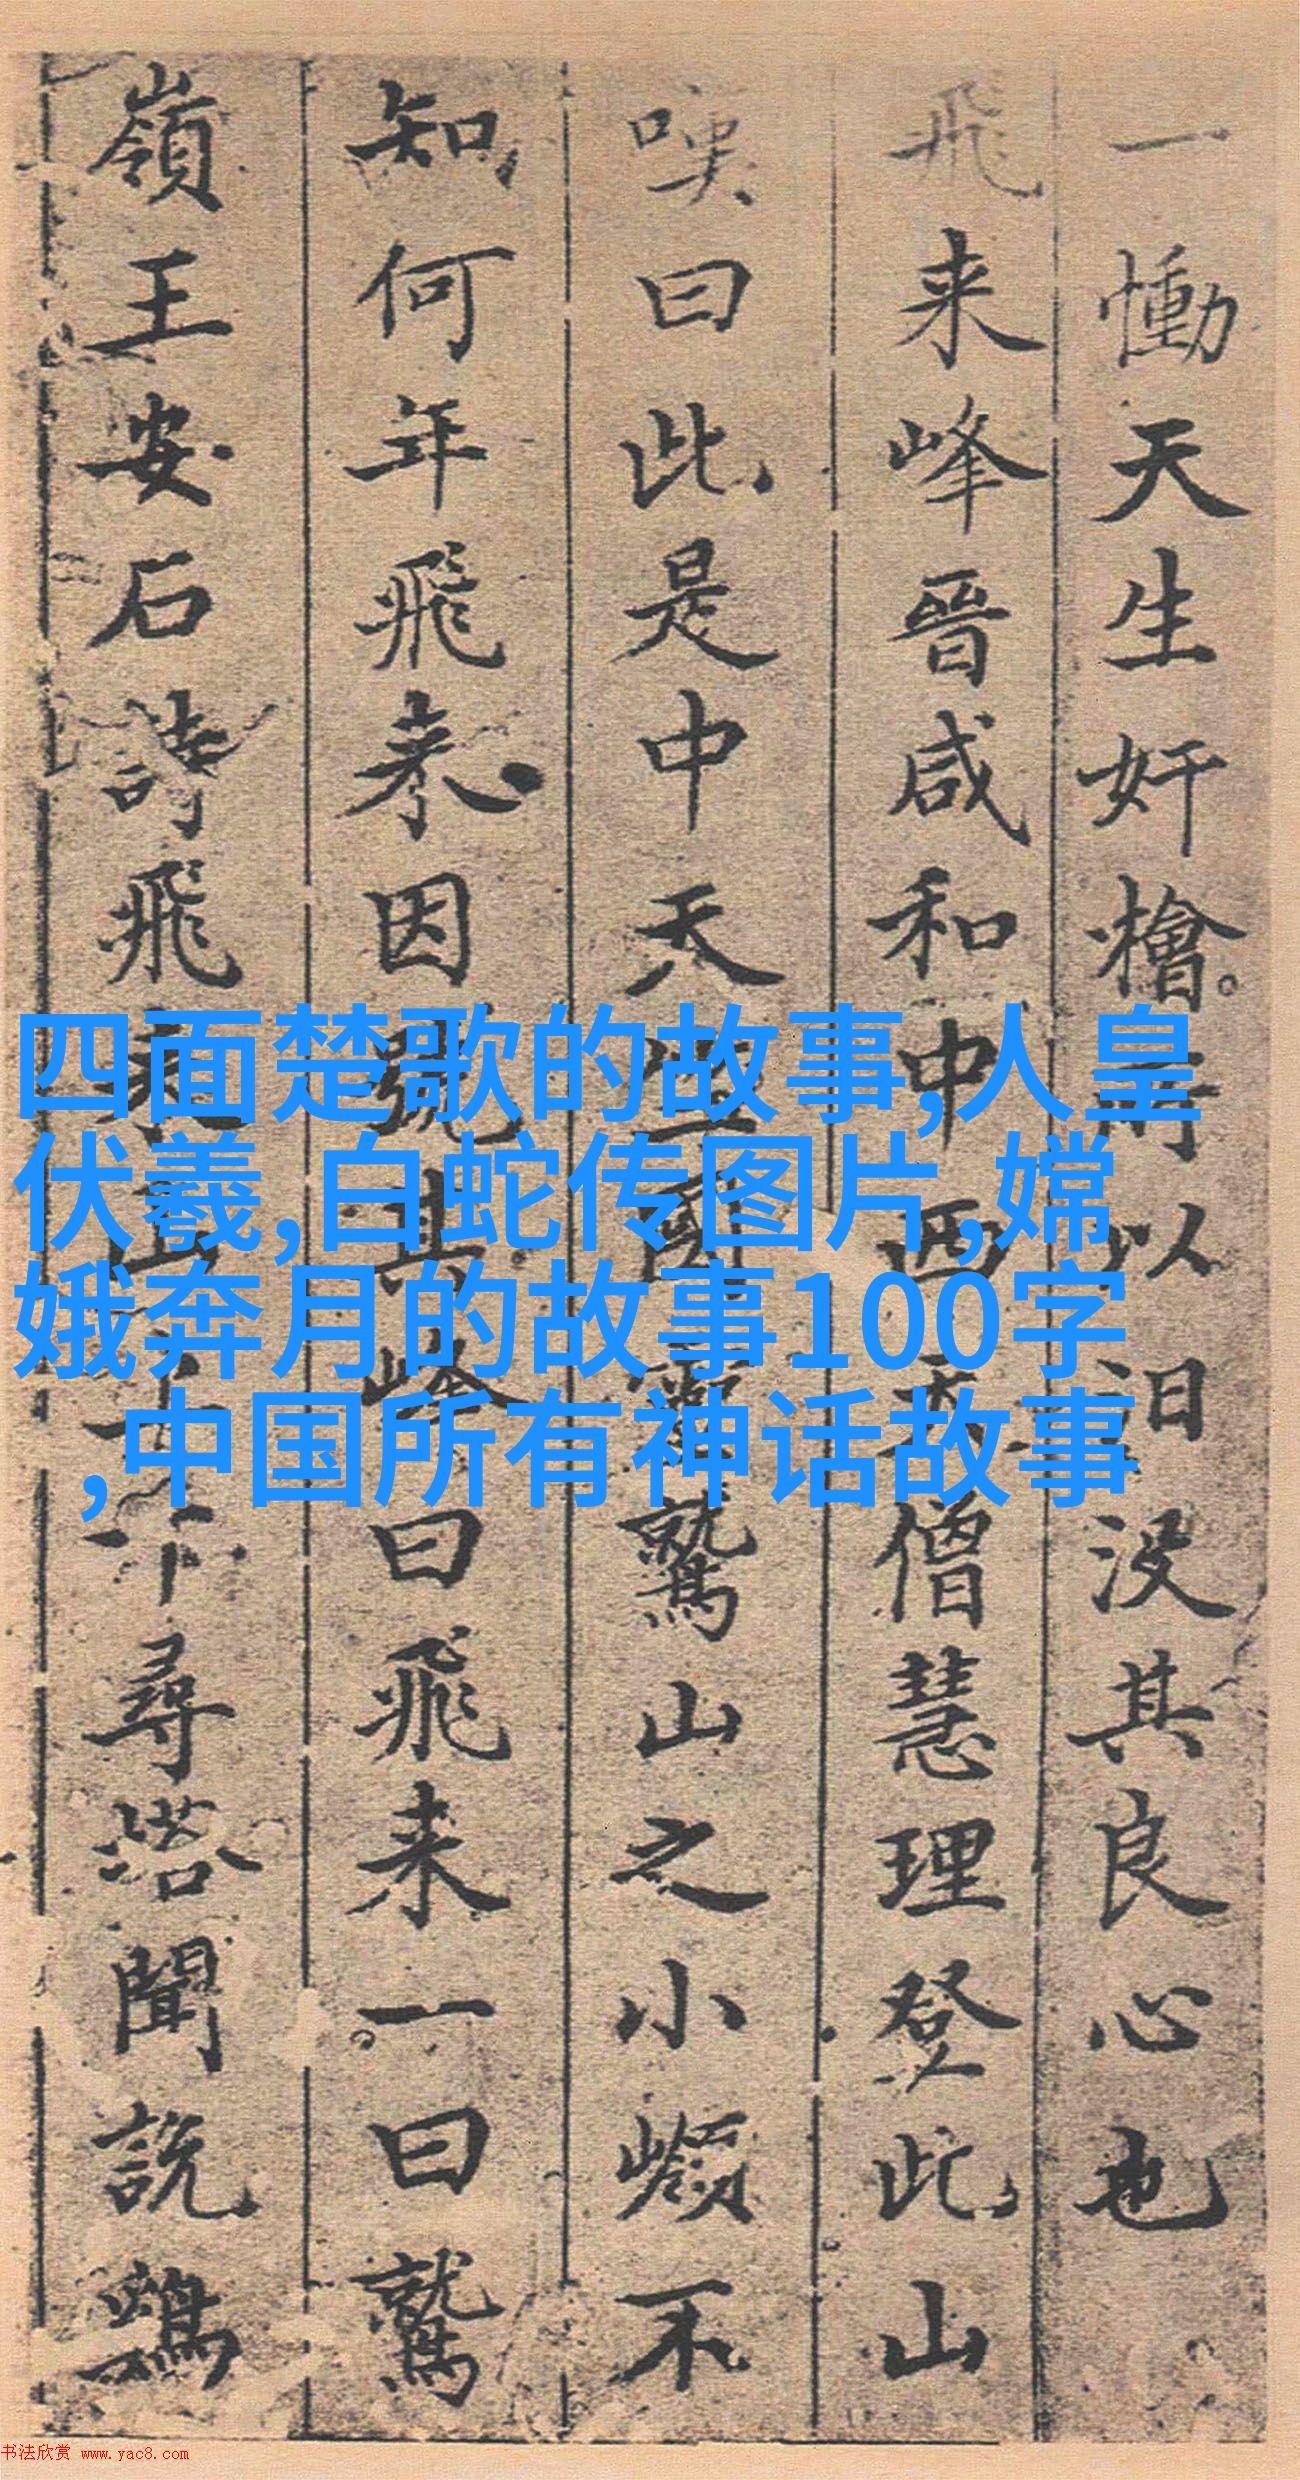 一慟天生奸檜所以汩没其良心也
飛来峰晉咸和中西天僧慧理登此山
嘆曰此是中天竺國靈鷲山之小嶺不
知何年飛来因號其峰曰飛来一曰鷲
嶺王安石詩飛来山上千尋塔聞説鷄
四面楚歌的故事,人皇
伏羲,白蛇传图片,嫦
娥奔月的故事100字
,中国所有神话故事
书法欣赏 www.yac8.com